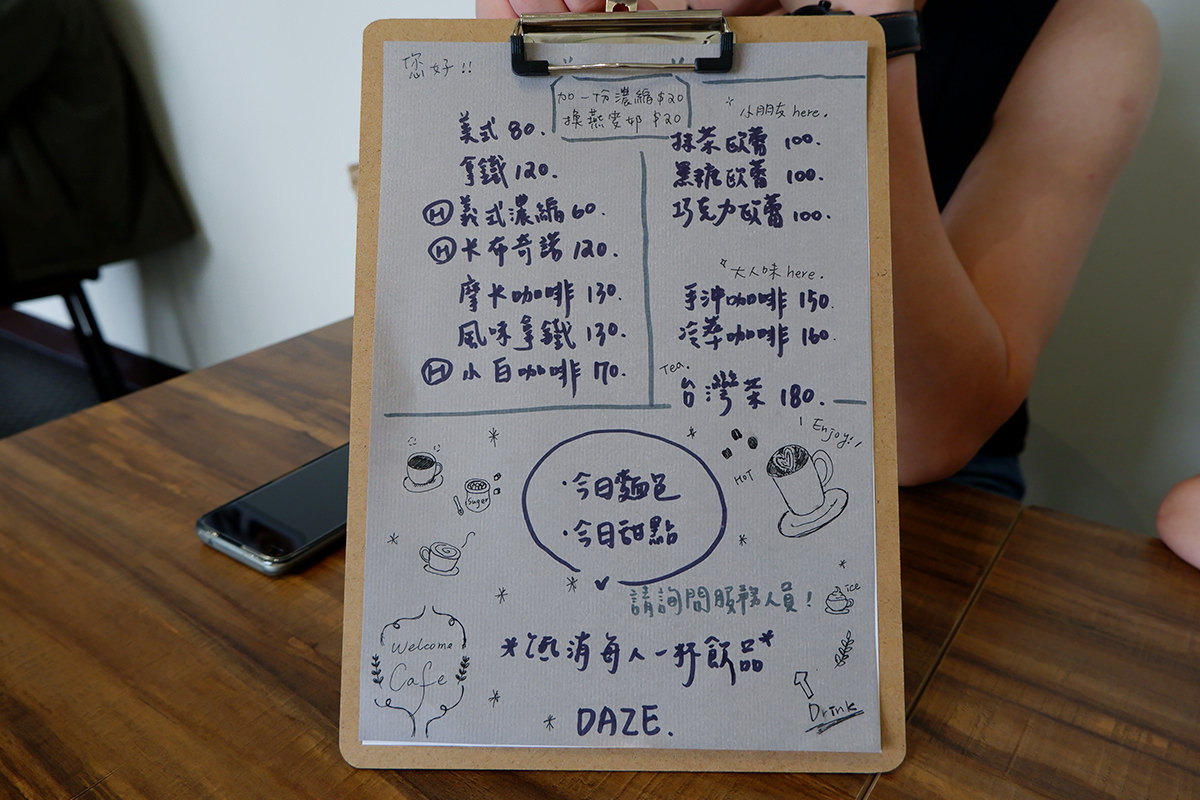 您好!!
加一份濃縮$20
換燕麥奶$20
美式 80.
拿鐵 120.
Ⓗ義式濃縮 60.
Ⓗ卡布奇諾 120.
摩卡咖啡 130.
風味拿鐵 130.
Ⓗ小白咖啡 70.
小朋友 here.
抹茶歐蕾 100.
黑糖歐蕾 100.
巧克力歐蕾 100.
大人味 here.
手沖咖啡 150.
冷萃咖啡 160.
Tea.
台灣茶 180.
Enjoy!!
HOT
Sugar
·今日麵包
·今日甜點
請詢問服務人員!
ice
Welcome
Cafe
*低消每人一杯飲品*
Drink
DAZE.